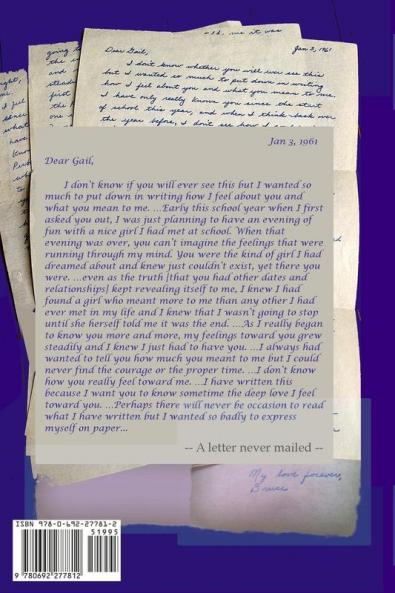 Dear Gail,
Jan 3, 1961
I don't know whether you will ever see this
but I wanted so much to put down in writing
how I feel about you and what you mean to me.
I have only really known you since the start
of school this year, and when I think back over
the year before, I don't see how I
Jan 3, 1961
Dear Gail,
I don't know if you will ever see this but I wanted so
much to put down in writing how I feel about you and
what you mean to me. ...Early this school year when I first
asked you out, I was just planning to have an evening of
fun with a nice girl I had met at school. When that
evening was over, you can't imagine the feelings that were
running through my mind. You were the kind of girl I had
dreamed about and knew just couldn't exist, yet there you
were. ...even as the truth [that you had other dates and
relationships] kept revealing itself to me, I knew I had
found a girl who meant more to me than any other I had
ever met in my life and I knew that I wasn't going to stop
until she herself told me it was the end. ...As I really began
to know you more and more, my feelings toward you grew
steadily and I knew I just had to have you. ...I always had
wanted to tell you how much you meant to me but I could
never find the courage or the proper time. ...I don't know
how you really feel toward me. ...I have written this
because I want you to know sometime the deep love I feel
toward you. ...Perhaps there will never be occasion to read
what I have written but I wanted so badly to express
myself on paper...
-- A letter never mailed --
My love forever,
Bruce
ISBN 978-0-692-27781-2
51995
9 780692 277812